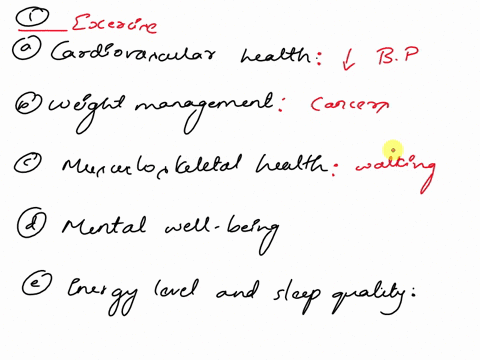 ① Exercise
ⓐ Cardiovascular health: ↓ B.P
ⓑ Weight management: Cancers
ⓒ Musculoskeletal health: walking
ⓓ Mental well-being
ⓔ Energy level and sleep quality: